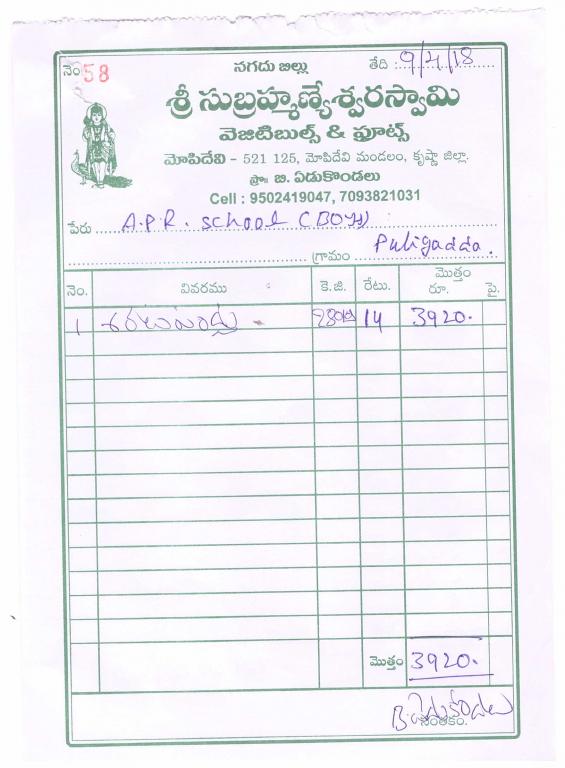 నగదు బిల్లు
నెం 58 తేది : 9/4/18
శ్రీ సుబ్రహ్మణ్యేశ్వరస్వామి
వెజిటిబుల్స్ & ఫ్రూట్స్
మోపిదేవి - 521 125, మోపిదేవి మండలం, కృష్ణా జిల్లా.
ప్రొ బి. ఏడుకొండలు
Cell : 9502419047, 7093821031
పేరు A.P.R. school (BOYS)
గ్రామం Puligadda.
నెం. వివరము కె.జి. రేటు. మొత్తం రూ. పై.
1 280 14 3920.
మొత్తం 3920.
B. ఏడుకొండలు
సంతకం.